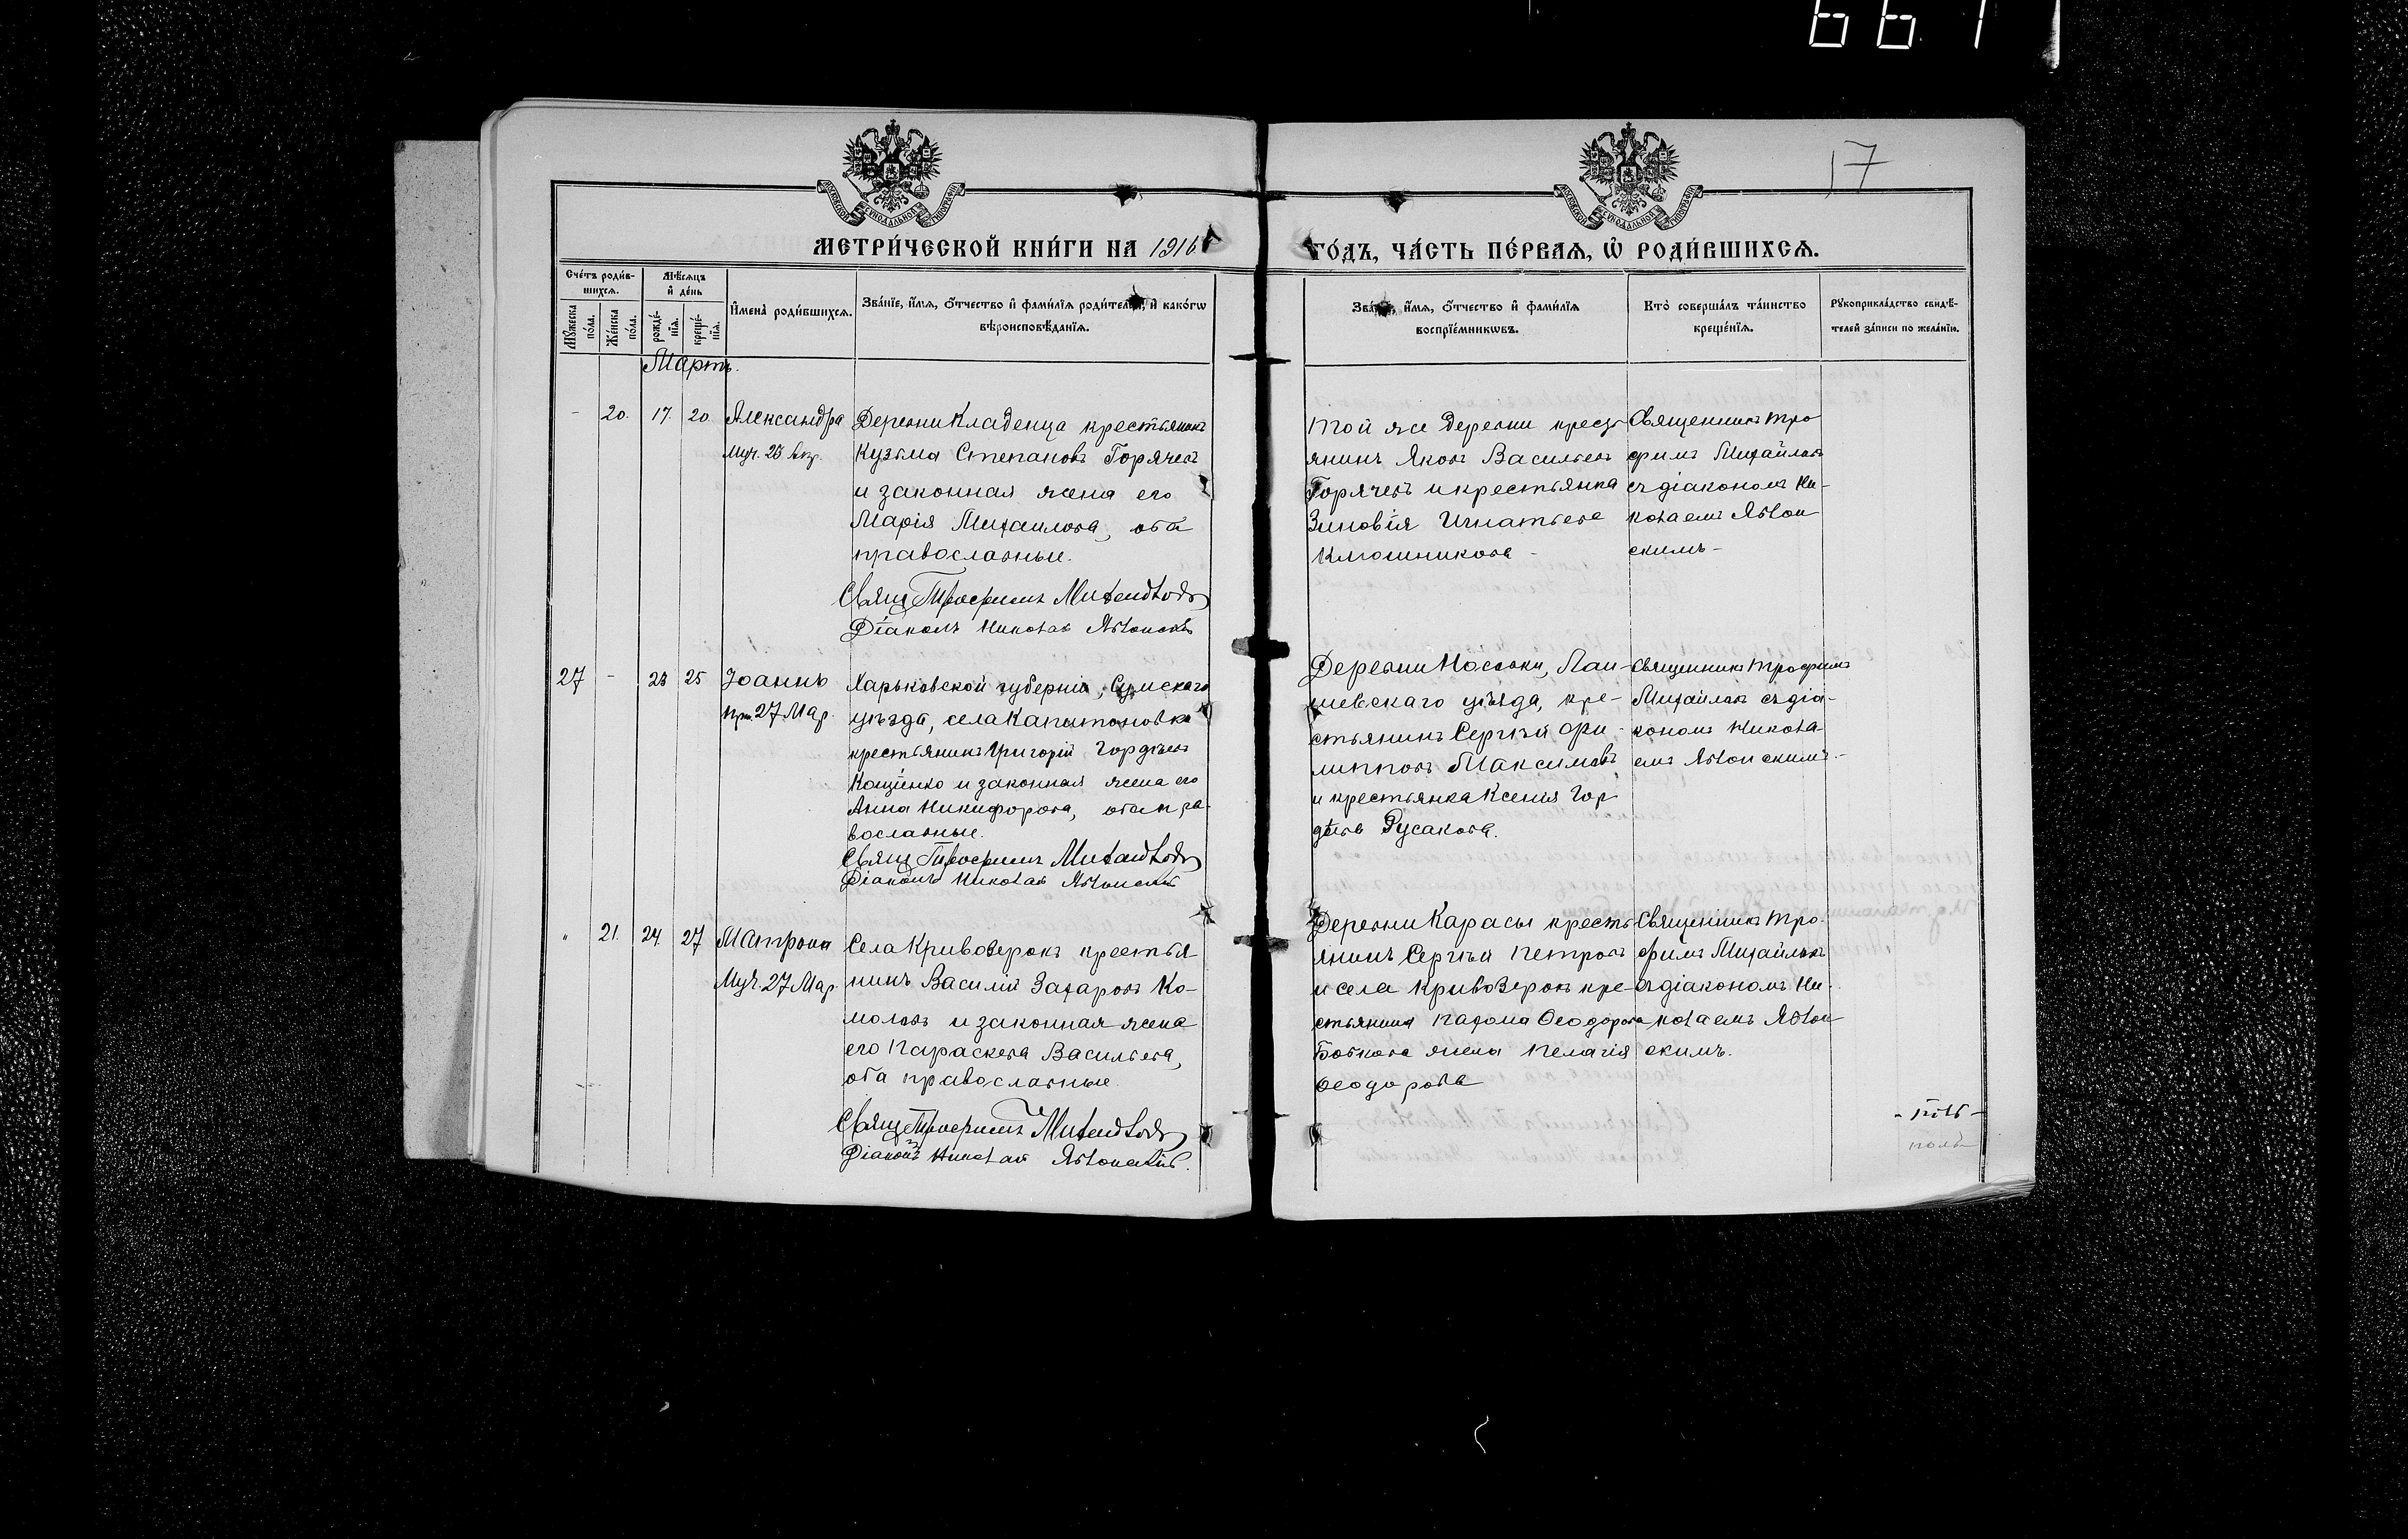 6617
17
МЕТРИ́ЧЕСКОЙ КНИ́ГИ НА 1916
ГО́ДЪ, ЧА́СТЬ ПЕ́РВАЯ, Ѽ РОДИ́ВШИХСЯ.
Сче́тъ роди́в-
шихся.
Мѣ́сяцъ
и́ де́нь
Му́жеска
по́ла.
Же́нска
по́ла.
рожде́-
нїя.
креще́-
нїя.
И҆мена̀ роди́вшихся.
Зва́нїе, и҆́мя, ѻ҆́тчество и҆ фами́лїя роди́телей, и҆ како́гѡ
вѣроисповѣ́данїя.
Зва́нїе, и҆́мя, ѻ҆́тчество и҆ фами́лїя
воспрїе́мникѡвъ.
Кто̀ соверша́лъ та́инство
креще́нїя.
Рукоприкла́дство свидѣ́-
телей за́писи по жела́нїю.
Мартъ.
- 20. 17. 20 Александра
Муч. 23 Апр.
Деревни Кладенца крестьянинъ
Кузьма Степановъ Горячевъ
и законная жена его
Марія Михаилова, оба
православные.
Свящ Трофимъ Михайловъ
Діаконъ Николай
Той же деревни крест-
янинъ Яковъ Васильевъ
Горячевъ и крестьянка
Зиновія Игнатьева
Клюшникова -
Священникъ Тро
фимъ Михайловъ
съ діакономъ Ни-
колаемъ
скимъ -
27 - 23 25 Іоаннъ
Прп. 27 Мар.
Харьковской губерніи, Сумскаго
уѣзда, села Капитоновка
крестьянинъ Григорій Гордѣевъ
Кощіенко и законная жена его
Анна Никифорова, оба пра-
вославные.
Свящ Трофимъ Михайловъ
Діаконъ Николай
Деревни Носовки, Лаи-
шевскаго уѣзда, кре-
стьянинъ Сергѣй Фи-
липповъ Максимовъ
и крестьянка Ксенія Гор
дѣева Русакова.
Священникъ Трофимъ
Михайловъ съ діа-
кономъ Никола
емъ скимъ -
" 21. 24 27 Матрона
Муч. 27 Мар.
Села Кривозерокъ крестья
нинъ Василій Захаровъ Ко-
моловъ и законная жена
его Параскева Васильева,
оба православные.
Свящ Трофимъ Михайловъ
Діаконъ Николай
Деревни Карасы кресть
янинъ Сергѣй Петровъ
и села Кривозерокъ кре-
стьянина Пахома Ѳеодорова
Бобкова жена Пелагія
Ѳеодорова
Священникъ Тро-
фимъ Михайловъ
съ діакономъ Ни-
колаемъ
скимъ.